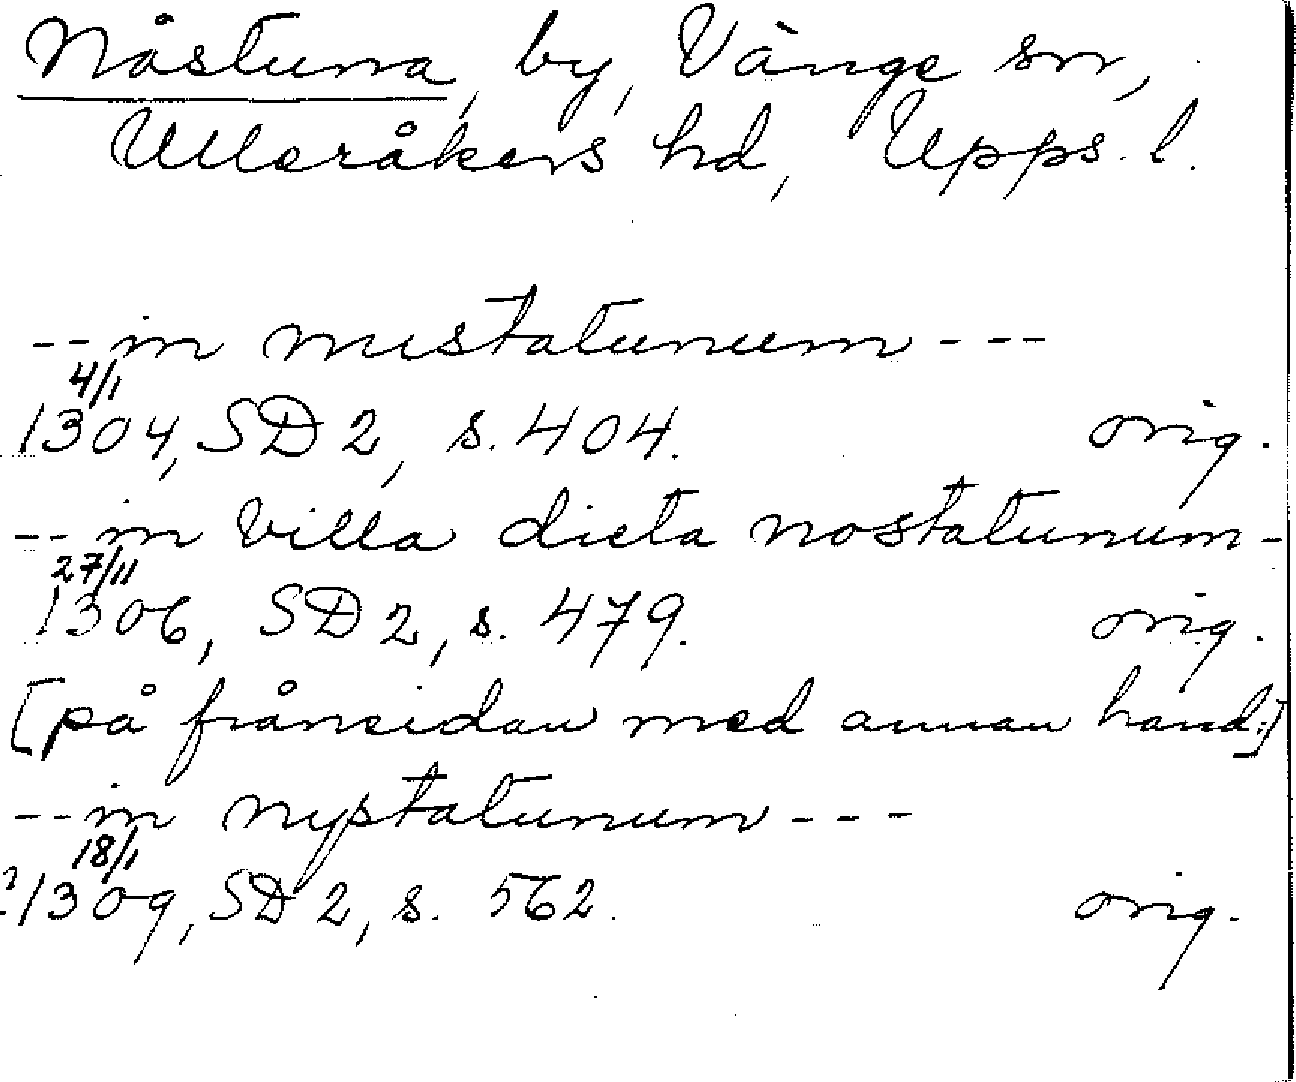 Nåstuna, by, Vänge sn,
Ulleråkers hd, Upps. l.
-- in mistatunum ---
4/1
1304, SD 2, s. 404. orig.
-- in villa dicta nostatunum -
27/11
1306, SD 2, s. 479. orig.
[på frånsidan med annan hand:]
-- in nystatunum ---
18/1
? 1309, SD 2, s. 562. orig.